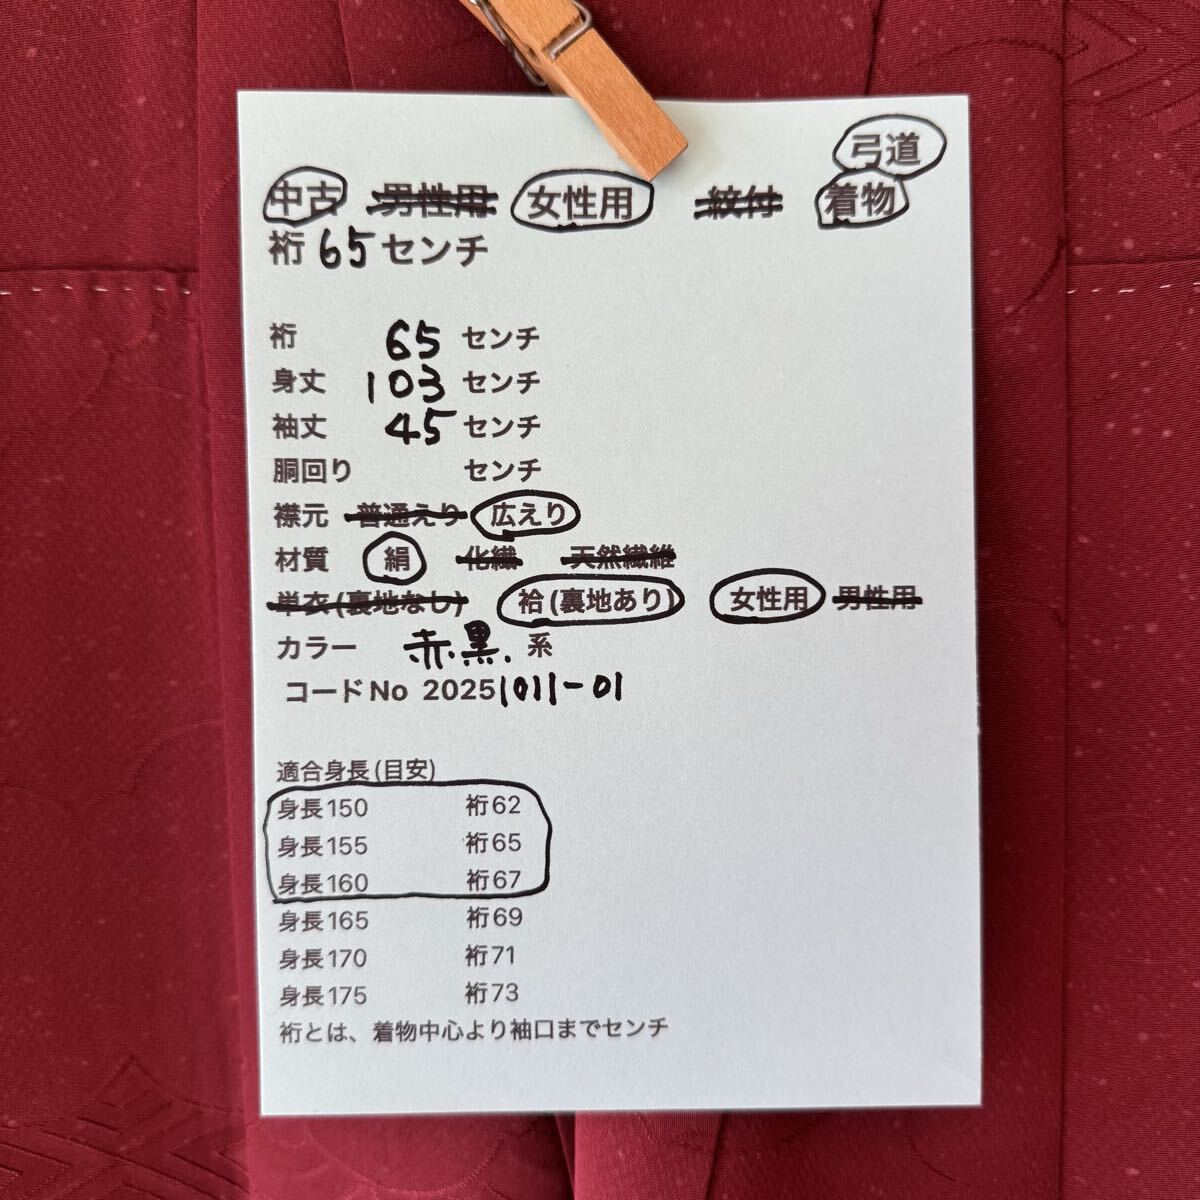 弓道
中古 男性用 女性用 紋付 着物
裄 65 センチ
裄 65 センチ
身丈 103 センチ
袖丈 45 センチ
胴回り センチ
襟元 普通えり 広えり
材質 絹 化繊 天然繊維
単衣(裏地なし) 袷(裏地あり) 女性用 男性用
カラー 赤.黒. 系
コードNo 20251011-01
適合身長(目安)
身長150 裄62
身長155 裄65
身長160 裄67
身長165 裄69
身長170 裄71
身長175 裄73
裄とは、着物中心より袖口までセンチ